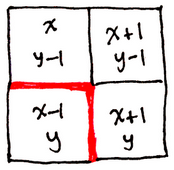 x
y-1
x+1
y-1
x-1
y
x+1
y